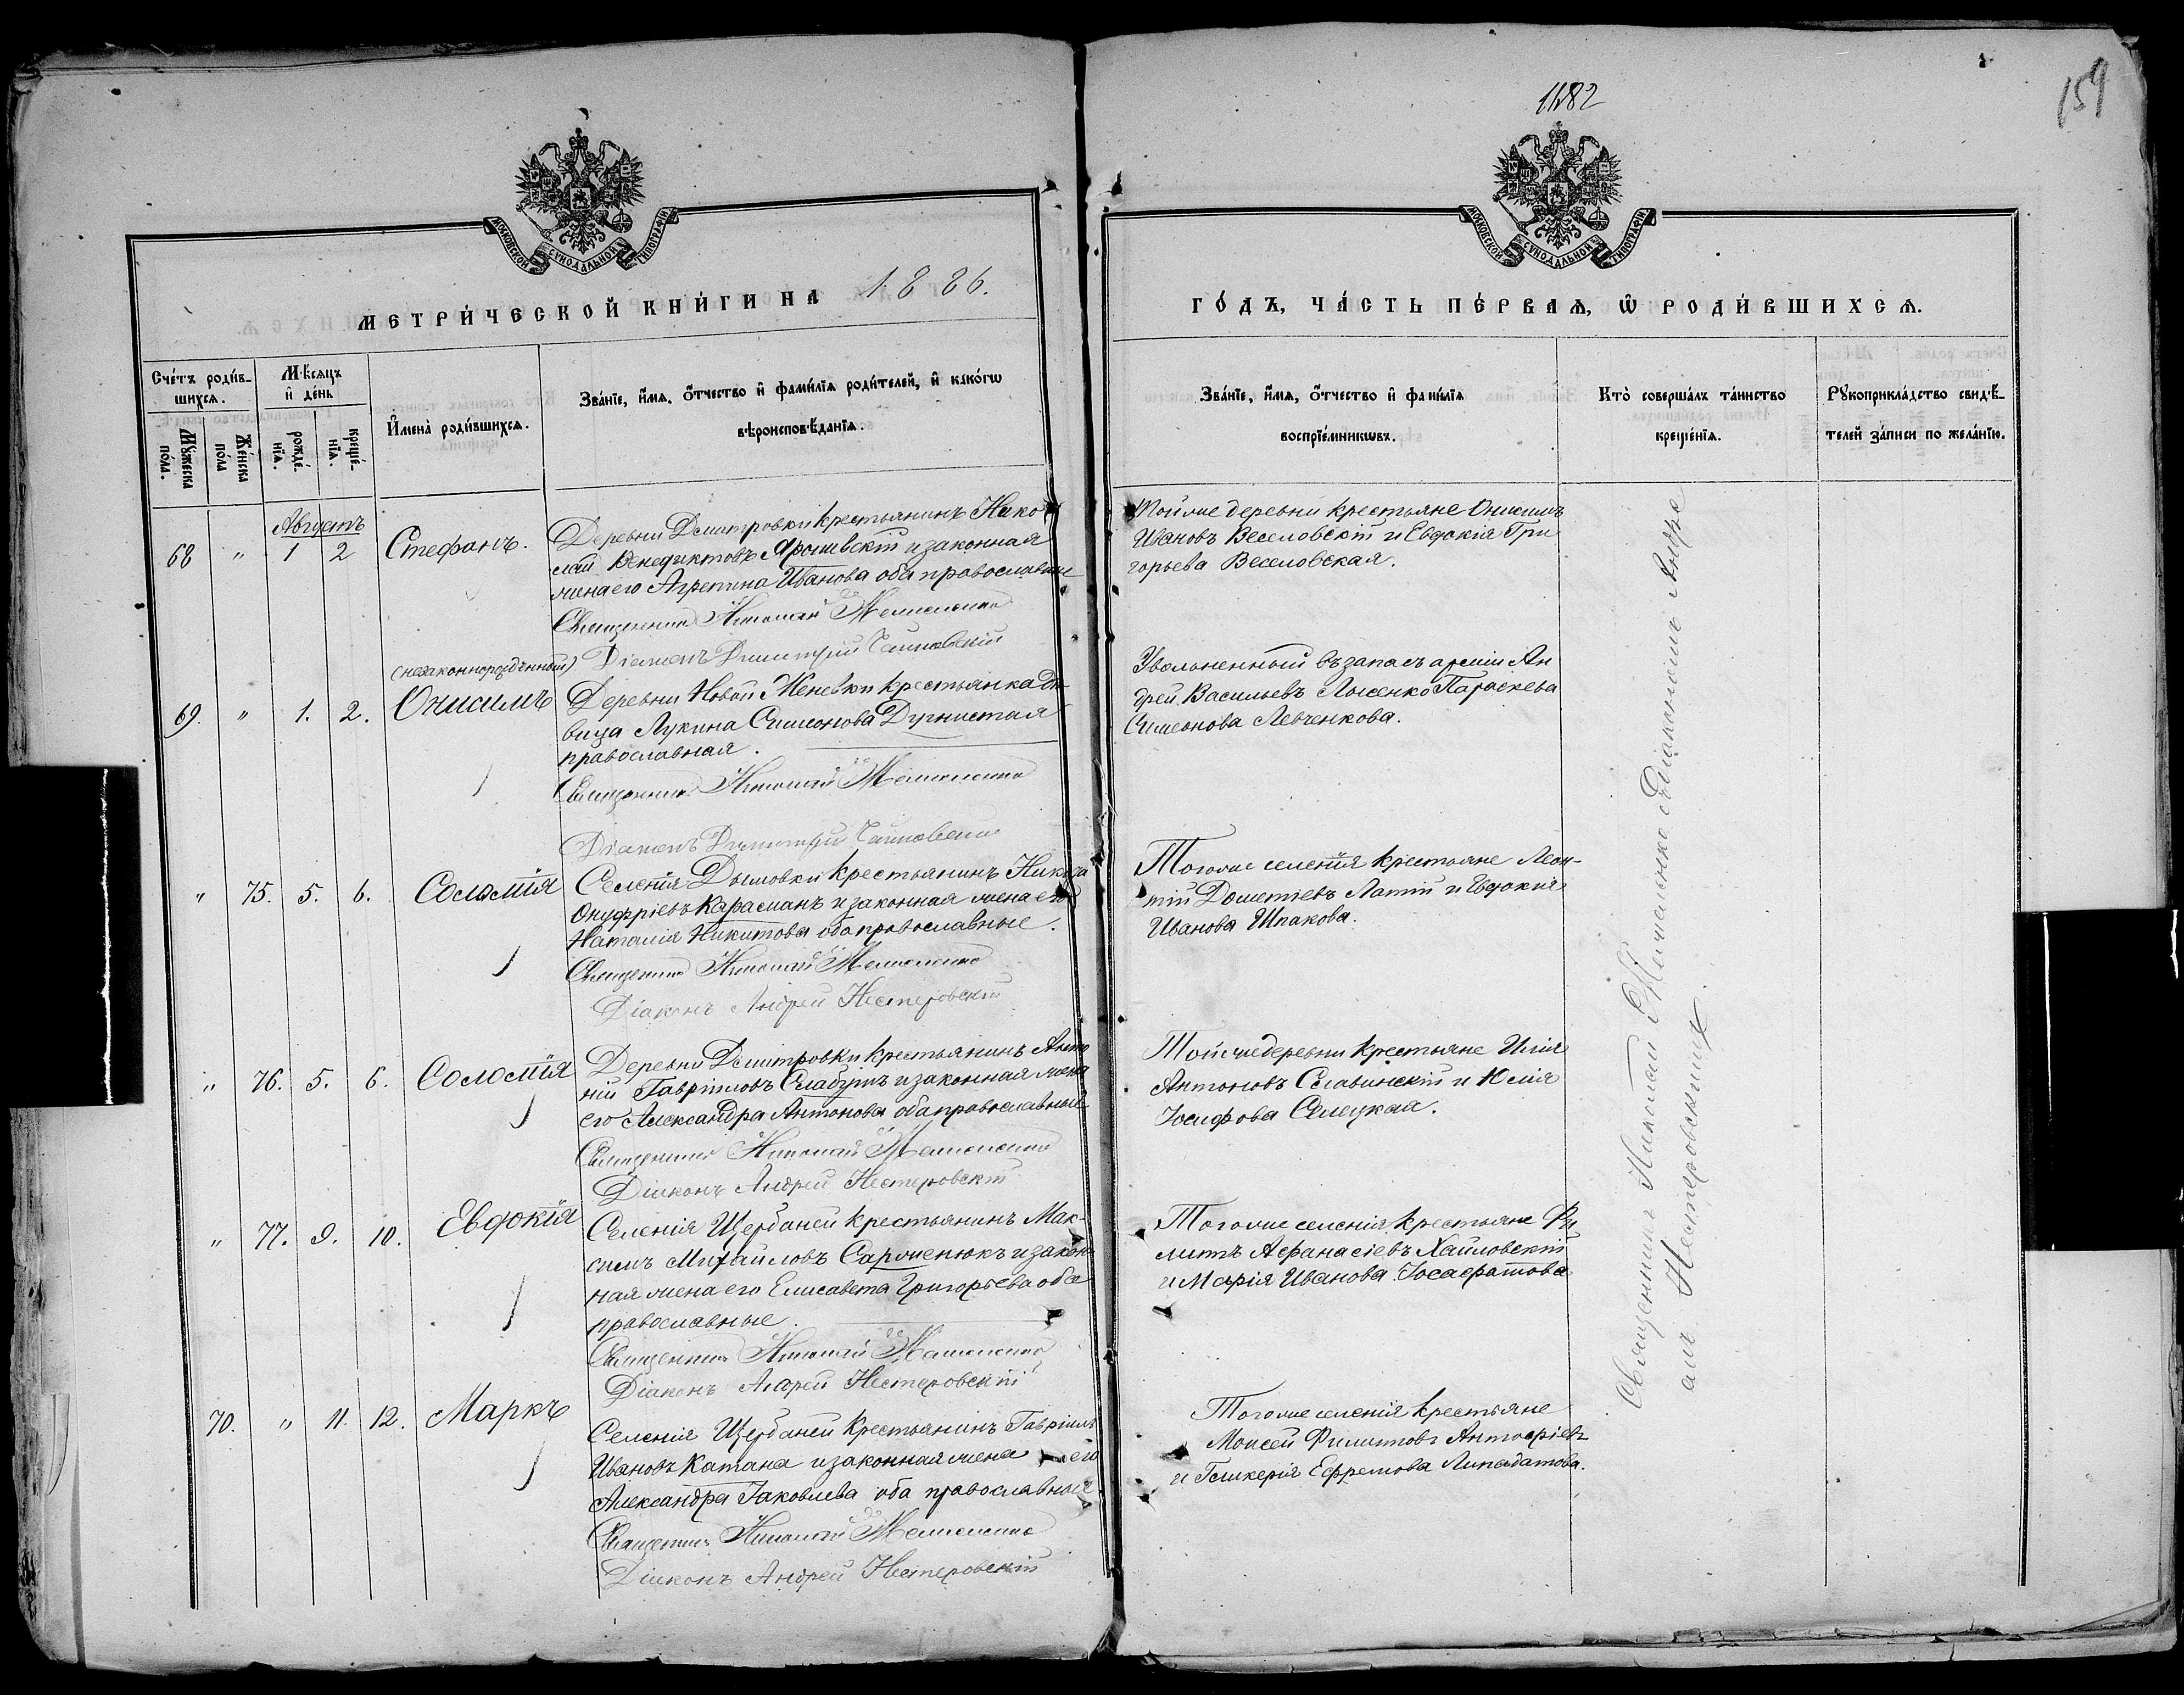 1182
159
МОСКОВСКОЙ СѴНОДАЛЬНОЙ ТИПОГРАФІИ
МОСКОВСКОЙ СѴНОДАЛЬНОЙ ТИПОГРАФІИ
МЕТРИ́ЧЕСКОЙ КНИ́ГИ НА 1886.
ГО́ДЪ, ЧА́СТЬ ПЕ́РВАѦ, Ѿ РОДИ́ВШИХСѦ.
Сче́тъ роди́в-
шихсѧ.
Мꙋ́жеска
по́ла.
Же́нска
по́ла
Мѣ́сѧцъ
и҆ де́нь
рожде́-
нїѧ.
креще́-
нїѧ.
И҆мена̀ роди́вшихсѧ.
Зва́нїе, и҆́мѧ, ѻ҆́тчество и҆ фами́лїѧ роди́телей, и҆ како́гѡ
вѣроисповѣ́данїѧ.
Зва́нїе, и҆́мѧ, ѻ҆́тчество и҆ фами́лїѧ
воспрїе́мникѡвъ.
Кто̀ соверша́лъ та́инство
креще́нїѧ.
Рꙋкоприкла́дство свидѣ́-
телей за́писи по жела́нїю.
Августъ
68 " 1 2 Стефанъ.
Деревни Дмитровки крестьянинъ Нико
лай Венедиктовъ Ярошевскій и законная
жена его Агрепина Иванова оба православные
Священникъ Николай
Діаконъ Димитрій
Тойже деревни крестьяне Онисимъ
Ивановъ Веселовскій и Евдокія Гри
горьева Веселовская.
(незаконнорожденный)
69. " 1. 2. Онисимъ
Деревни Новой крестьянка Дѣ
вица Лукина Симеонова
православная.
Священникъ Николай
Діаконъ Димитрій
Уволенный въ запасъ арміи Ан
дрей Васильевъ Лысенко Параскева
Симеонова Левченкова.
" 75. 5. 6. Соломія
Селенія Дымовки крестьянинъ Никола
Онуфріевъ Карасманъ и законная жена его
Наталія Никитова оба православные.
Священникъ Николай
Діаконъ Андрей Нестеровскій
Тогоже селенія крестьяне Леон-
тій Дометіевъ Латій и Евдокія
Иванова Шпакова.
" 76. 5. 6. Соломія
Деревни Дмитровки крестьянинъ Анто
ній Гавріиловъ и законная жена
его Александра Антонова оба православные
Священникъ Николай
Діаконъ Андрей Нестеровскій
Тойже деревни крестьяне Илія
Антоновъ Славинскій и Юлія
Іосифова
" 77. 9. 10. Евдокія
Селенія Щербаней крестьянинъ Мак-
симъ Михайловъ Сарменюкъ и закон
ная жена его Елисавета Григорьева оба
православные.
Священникъ Николай
Діаконъ Андрей Нестеровскій
Тогоже селенія крестьяне Фи
липъ Афанасіевъ Хайловскій
и Марія Иванова Іосафатова
70. " 11. 12. Маркъ
Селенія Щербаней Крестьянинъ Гавріилъ
Ивановъ Катана и законная жена его
Александра Іаковлева оба православные
Священникъ Николай
Діаконъ Андрей Нестеровскій
Тогоже селенія крестьяне
Моисей Филиповъ
и Гликерія Ефремова
Священникъ Николай съ Діакономъ Андре
емъ Нестеровскимъ.